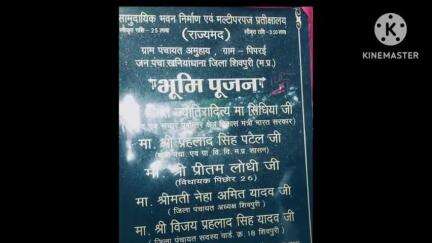 सामुदायिक भवन निर्माण एवं मल्टीपरपज प्रतीक्षालय
स्वीकृत राशि -25 लाख
(राज्यमद)
स्वीकृत राशि -3.50 लाख
ग्राम पंचायत अमुहाय, ग्राम - पिपरई
जन पंचा. खनियांधाना जिला शिवपुरी (म.प्र.)
भूमि पूजन
ज्योतिरादित्य मा सिंधिया जी
विकास मंत्री भारत सरकार)
मा. श्री प्रहलाद सिंह पटेल जी
मा. श्री प्रीतम लोधी जी
(विधायक पिछोर 26)
मा. श्रीमती नेहा अमित यादव जी
(जिला पंचायत अध्यक्ष शिवपुरी)
मा. श्री विजय प्रहलाद सिंह यादव जी
(जिला पंचायत सदस्य वार्ड. क्र. 18 शिवपुरी)
KINEMASTER